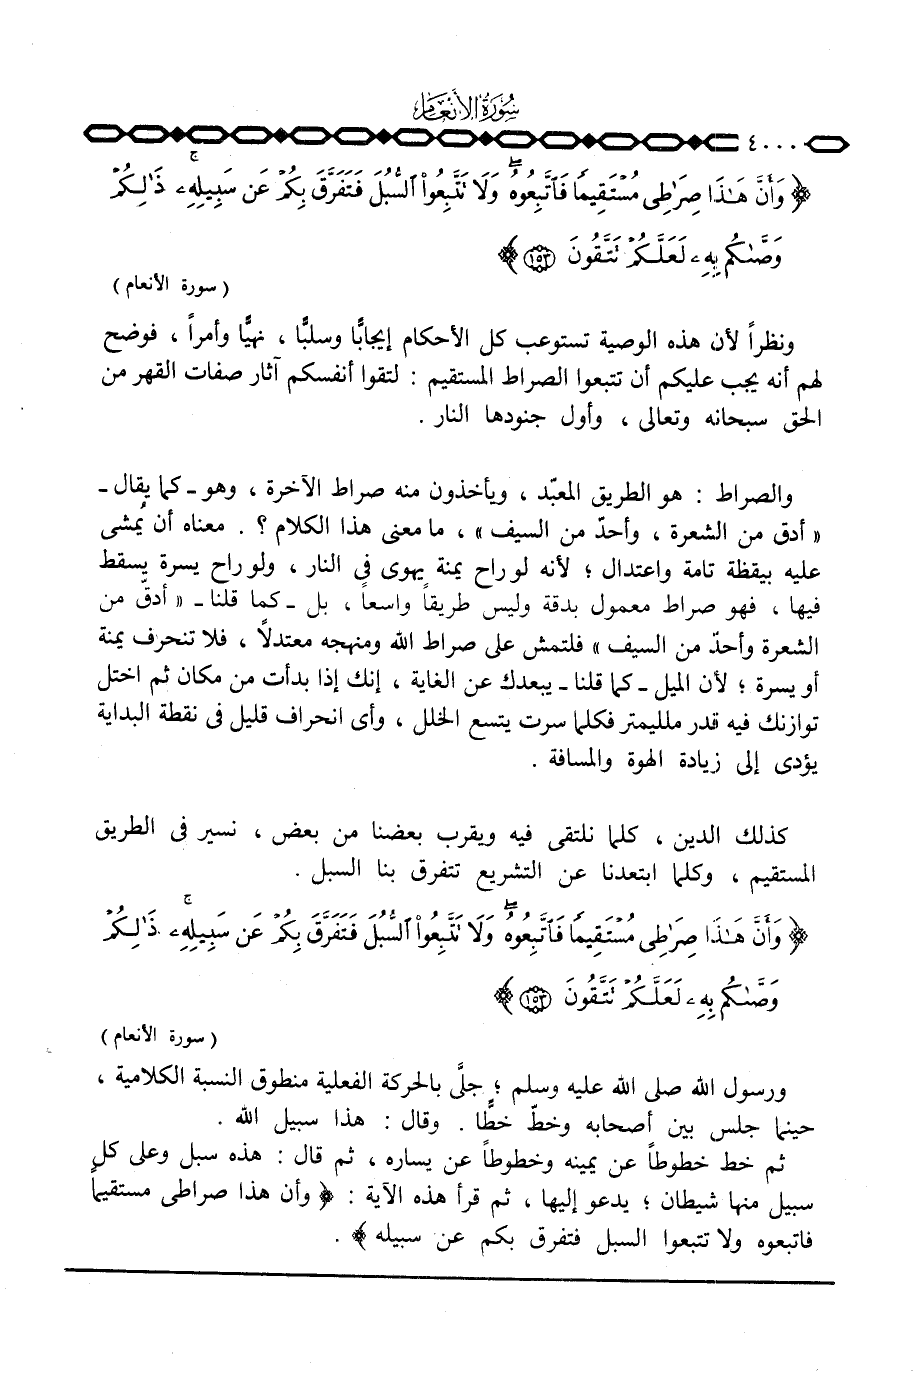 سُورَةُ الأَنْعَامِ
٤٠٠٠
﴿ وَأَنَّ هَٰذَا صِرَٰطِى مُسْتَقِيمًا فَٱتَّبِعُوهُ ۖ وَلَا تَتَّبِعُوا۟ ٱلسُّبُلَ فَتَفَرَّقَ بِكُمْ عَن سَبِيلِهِۦ ۚ ذَٰلِكُمْ
وَصَّىٰكُم بِهِۦ لَعَلَّكُمْ تَتَّقُونَ ١٥٣ ﴾
( سورة الأنعام )
ونظراً لأن هذه الوصية تستوعب كل الأحكام إيجابًا وسلبًا ، نهيًا وأمراً ، فوضح
لهم أنه يجب عليكم أن تتبعوا الصراط المستقيم : لتقوا أنفسكم آثار صفات القهر من
الحق سبحانه وتعالى ، وأول جنودها النار .
والصراط : هو الطريق المعبّد ، ويأخذون منه صراط الآخرة ، وهو ـ كما يقال ـ
« أدق من الشعرة ، وأحدّ من السيف » ، ما معنى هذا الكلام ؟ . معناه أن يُمشى
عليه بيقظة تامة واعتدال ؛ لأنه لو راح يمنة يهوى فى النار ، ولو راح يسرة يسقط
فيها ، فهو صراط معمول بدقة وليس طريقاً واسعاً ، بل ـ كما قلنا ـ « أدق من
الشعرة وأحدّ من السيف » فلتمش على صراط الله ومنهجه معتدلًا ، فلا تنحرف يمنة
أو يسرة ؛ لأن الميل ـ كما قلنا ـ يبعدك عن الغاية ، إنك إذا بدأت من مكان ثم اختل
توازنك فيه قدر ملليمتر فكلما سرت يتسع الخلل ، وأى انحراف قليل فى نقطة البداية
يؤدى إلى زيادة الهوة والمسافة .
كذلك الدين ، كلما نلتقى فيه ويقرب بعضنا من بعض ، نسير فى الطريق
المستقيم ، وكلما ابتعدنا عن التشريع تتفرق بنا السبل .
﴿ وَأَنَّ هَٰذَا صِرَٰطِى مُسْتَقِيمًا فَٱتَّبِعُوهُ ۖ وَلَا تَتَّبِعُوا۟ ٱلسُّبُلَ فَتَفَرَّقَ بِكُمْ عَن سَبِيلِهِۦ ۚ ذَٰلِكُمْ
وَصَّىٰكُم بِهِۦ لَعَلَّكُمْ تَتَّقُونَ ١٥٣ ﴾
( سورة الأنعام )
ورسول الله صلى الله عليه وسلم ؛ جلَّى بالحركة الفعلية منطوق النسبة الكلامية ،
حينما جلس بين أصحابه وخطّ خطًّا . وقال : هذا سبيل الله .
ثم خط خطوطاً عن يمينه وخطوطاً عن يساره ، ثم قال : هذه سبل وعلى كل
سبيل منها شيطان ؛ يدعو إليها ، ثم قرأ هذه الآية : ﴿ وأن هذا صراطى مستقيماً
فاتبعوه ولا تتبعوا السبل فتفرق بكم عن سبيله ﴾ .